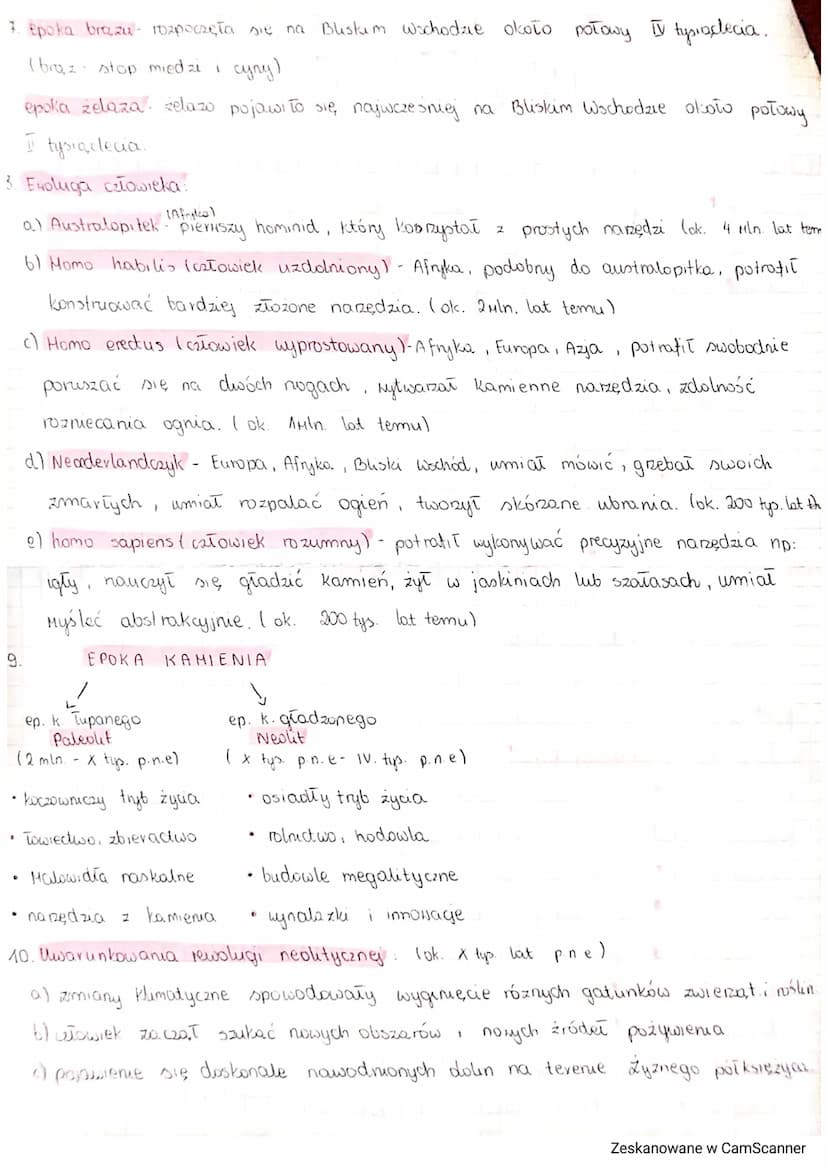 7. Epoka brązu - rozpoczęła się na Bliskim Wschodzie około połowy IV tysiąclecia.
(brąz - stop miedzi i cyny)
epoka żelaza - żelazo pojawiło się najwcześniej na Bliskim Wschodzie około połowy
II tysiąclecia.
8. Ewolucja człowieka:
(Afryka)
a) Australopitek - pierwszy hominid, który korzystał z prostych narzędzi (ok. 4 mln. lat tem
b) Homo habilis (człowiek uzdolniony) - Afryka, podobny do australopitka, potrafił
konstruować bardziej złożone narzędzia. (ok. 2mln. lat temu)
c) Homo erectus (człowiek wyprostowany) - Afryka, Europa, Azja, potrafił swobodnie
poruszać się na dwóch nogach, wytwarzał kamienne narzędzia, zdolność
rozniecania ognia. (ok. 1mln. lat temu)
d) Neardevlandczyk - Europa, Afryka, Bliski Wschód, umiał mówić, grzebał swoich
zmarłych, umiał rozpalać ogień, tworzył skórzane ubrania. (ok. 200 typ. lat
e) homo sapiens (człowiek rozumny) - potrafił wykonywać precyzyjne narzędzia np:
igły, nauczył się gładzić kamień, żył w jaskiniach lub szałasach, umiał
myśleć abstrakcyjnie. (ok. 200 tys. lat temu)
9. EPOKA KAMIENIA
ep. k Łupanego ep. k. gładzonego
Paleolit Neolit
(2 mln. - X typ. p.n.e) (X tys. p.n.e - IV. typ. p.n.e)
• koczowniczy tryb życia • osiadły tryb życia
• łowiectwo, zbieractwo • rolnictwo, hodowla
• Malowidła naskalne • budowle megalityczne
• narzędzia z kamienia • wynalazki i innowacje
10. Uwarunkowania rewolucji neolitycznej: (ok. X typ. lat p.n.e)
a) zmiany klimatyczne spowodowały wyginięcie różnych gatunków zwierząt i roślin
b) człowiek zaczął szukać nowych obszarów i nowych źródeł pożywienia
c) pojawienie się doskonale nawodnionych dolin na terenie Żyznego półksiężyca
Zeskanowane w CamScanner